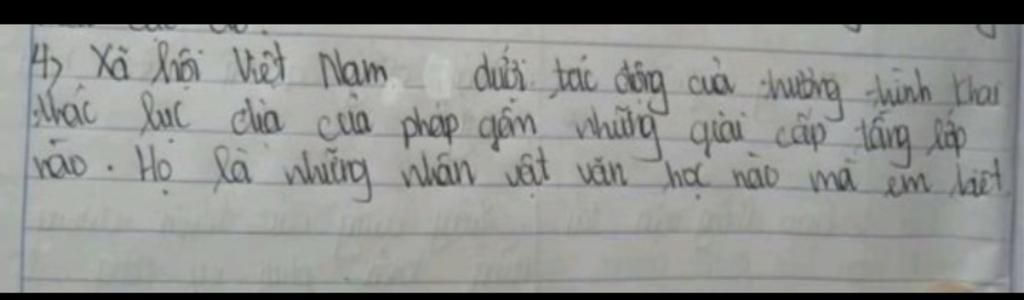 4) Xã hội Việt Nam dưới tác động của chương chình khai
thác lục địa của pháp gồm những giai cấp tầng lớp
nào. Họ là những nhân vật văn học nào mà em biết